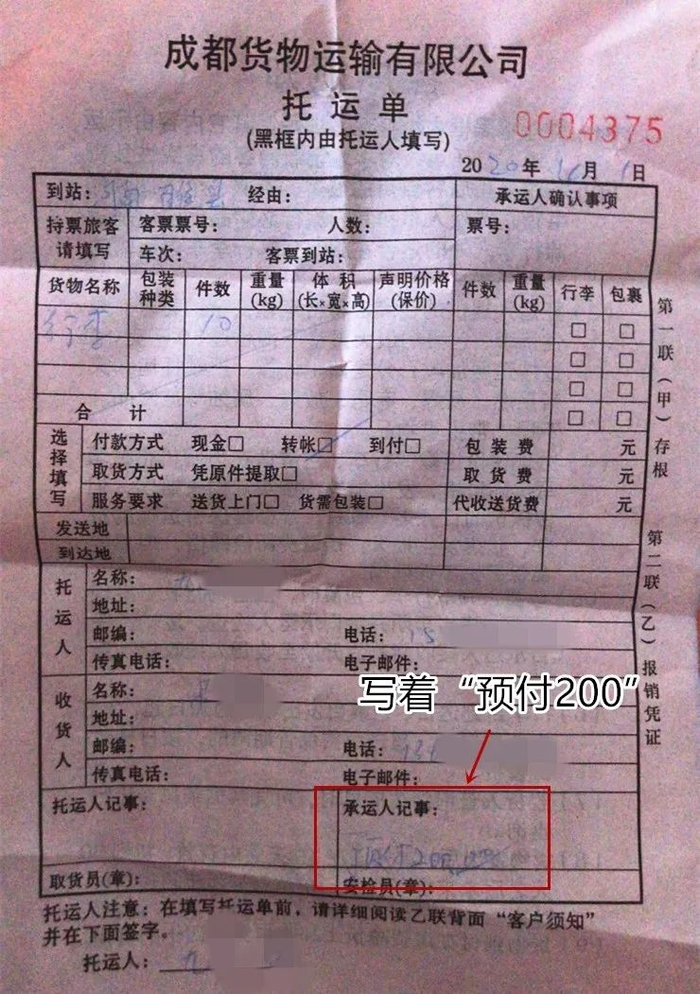 成都货物运输有限公司
托运单
(黑框内由托运人填写)
0004375
2020年 月1日
到站： 经由： 承运人确认事项
持票旅客请填写 客票票号： 人数： 票号：
车次： 客票到站：
货物名称 包装种类 件数 重量(kg) 体积(长×宽×高) 声明价格(保价) 件数 重量(kg) 行李 包裹
行李 10 □ □
□ □
□ □
合计 □ □
选择填写 付款方式 现金□ 转帐□ 到付□ 包装费 元
取货方式 凭原件提取□ 取货费 元
服务要求 送货上门□ 货需包装□ 代收送货费 元
发送地
到达地
托运人 名称：
地址：
邮编： 电话：15
传真电话： 电子邮件：
收货人 名称：
地址：
邮编： 电话：
传真电话： 电子邮件：
写着“预付200”
托运人记事： 承运人记事：
预付200
取货员(章)： 安检员(章)：
托运人注意：在填写托运单前，请详细阅读乙联背面“客户须知”
并在下面签字。
托运人：
第一联（甲）存根
第二联（乙）报销凭证